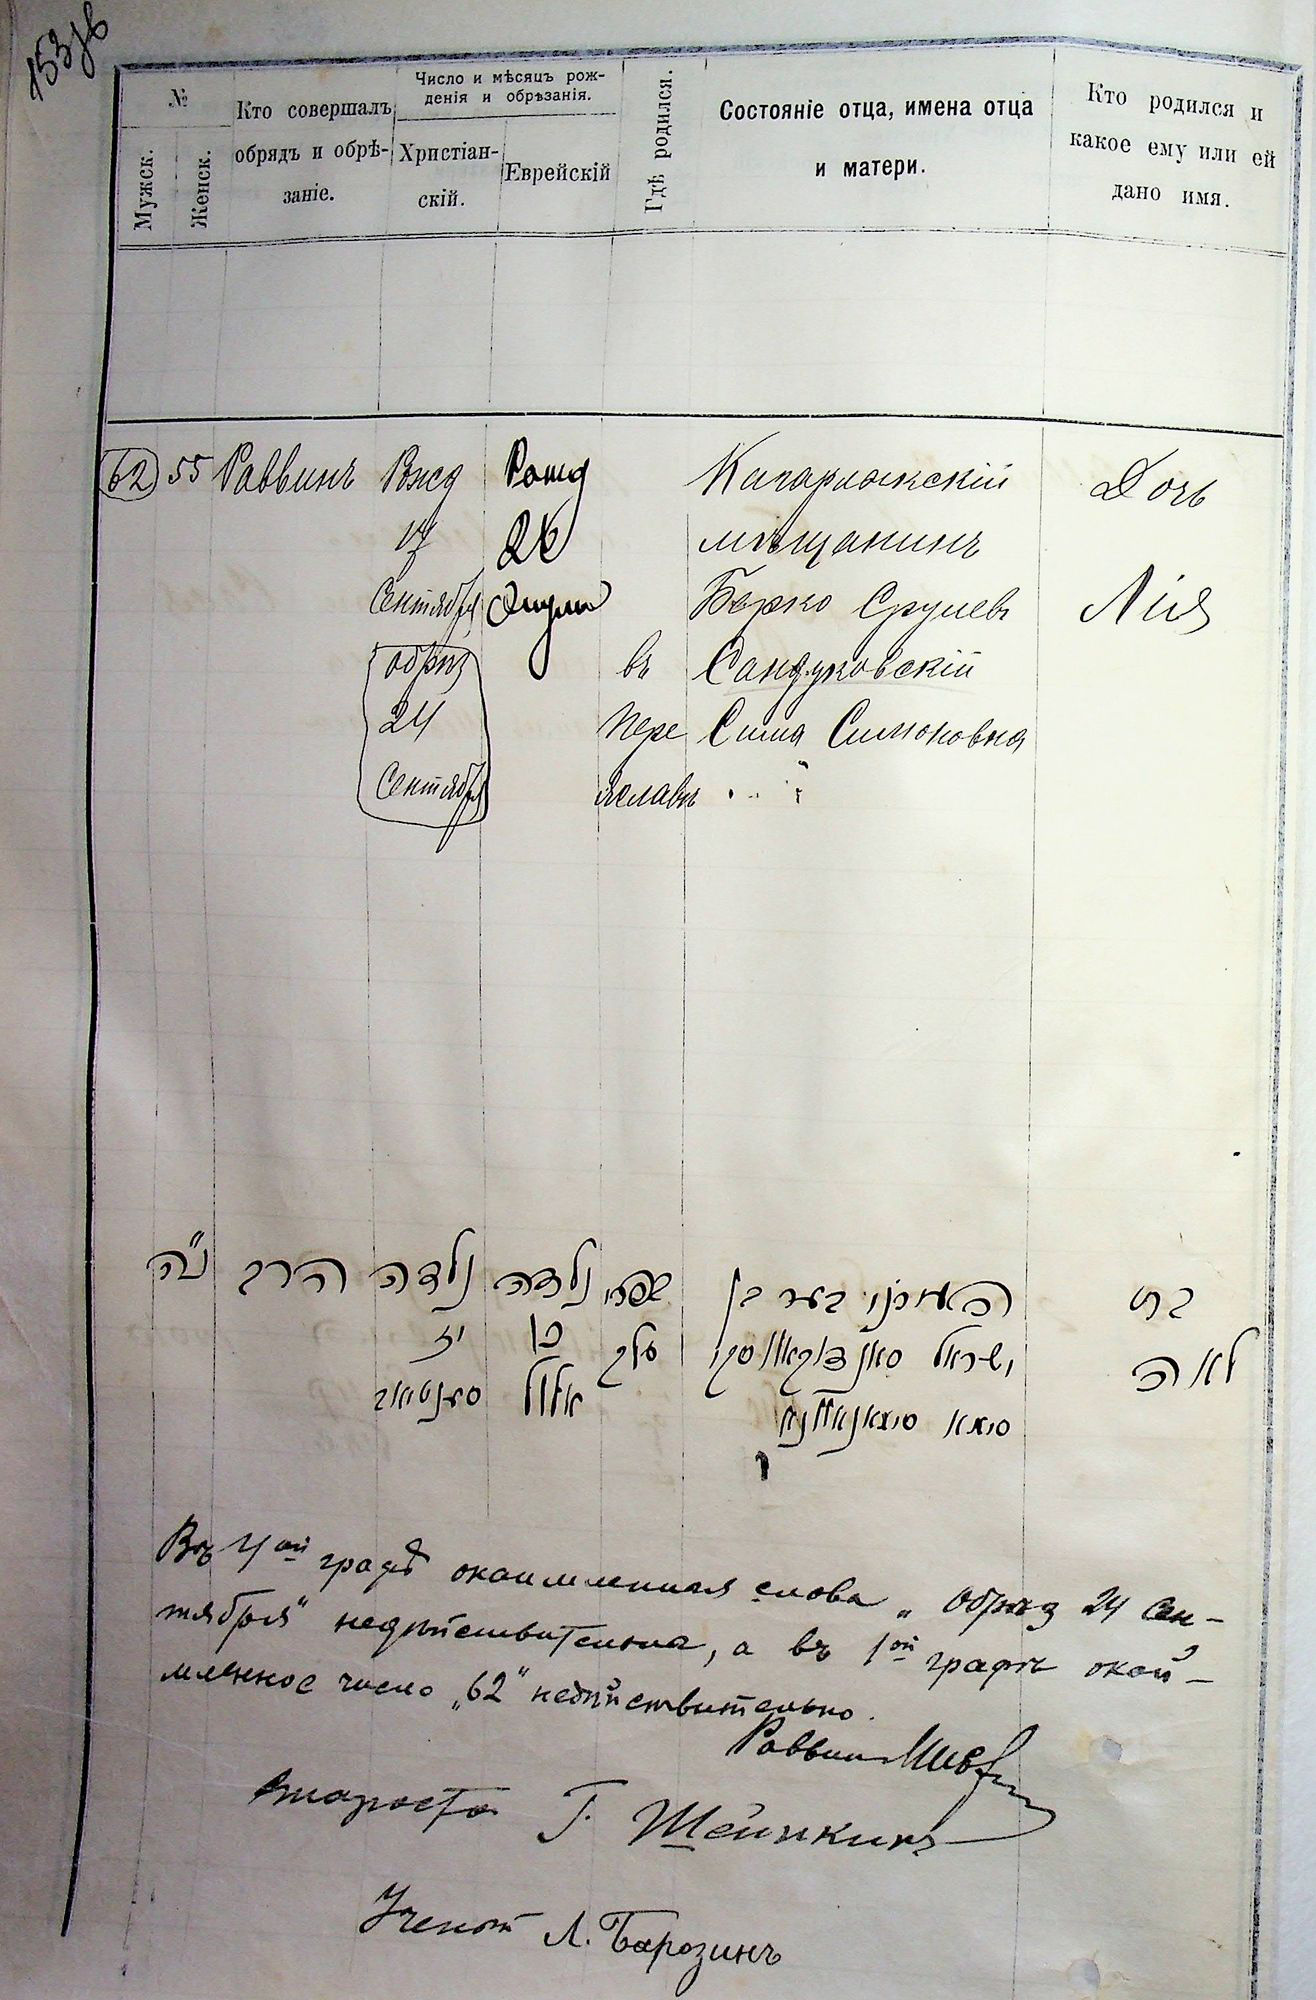 №
Мужск.
Женск.
Кто совершалъ
обрядъ и обрѣ-
заніе.
Число и мѣсяцъ рож-
денія и обрѣзанія.
Христіан-
скій.
Еврейскій
Гдѣ родился.
Состояніе отца, имена отца
и матери.
Кто родился и
какое ему или ей
дано имя.
62 55 Раввинъ
17
Сентября
24
Сентября
26
въ
Пере
яславѣ
Кагарлыкскій
мѣщанинъ
Берко Срулевъ
Сандуковскій
Сима Симоновна
Дочь
Лія
נ"ה
הרב
נולדה
יז
נולדה
כו
אלול
בת
לאה
ישראל
סימא
Въ 4ой графѣ окаймленныя слова „Обрѣз 24 Сен-
тября" недѣйствительны, а въ 1ой графѣ окай-
мленное число „62" недѣйствительно.
Раввинъ
Староста Г. Шейнкинъ
Ученый Л. Барозинъ